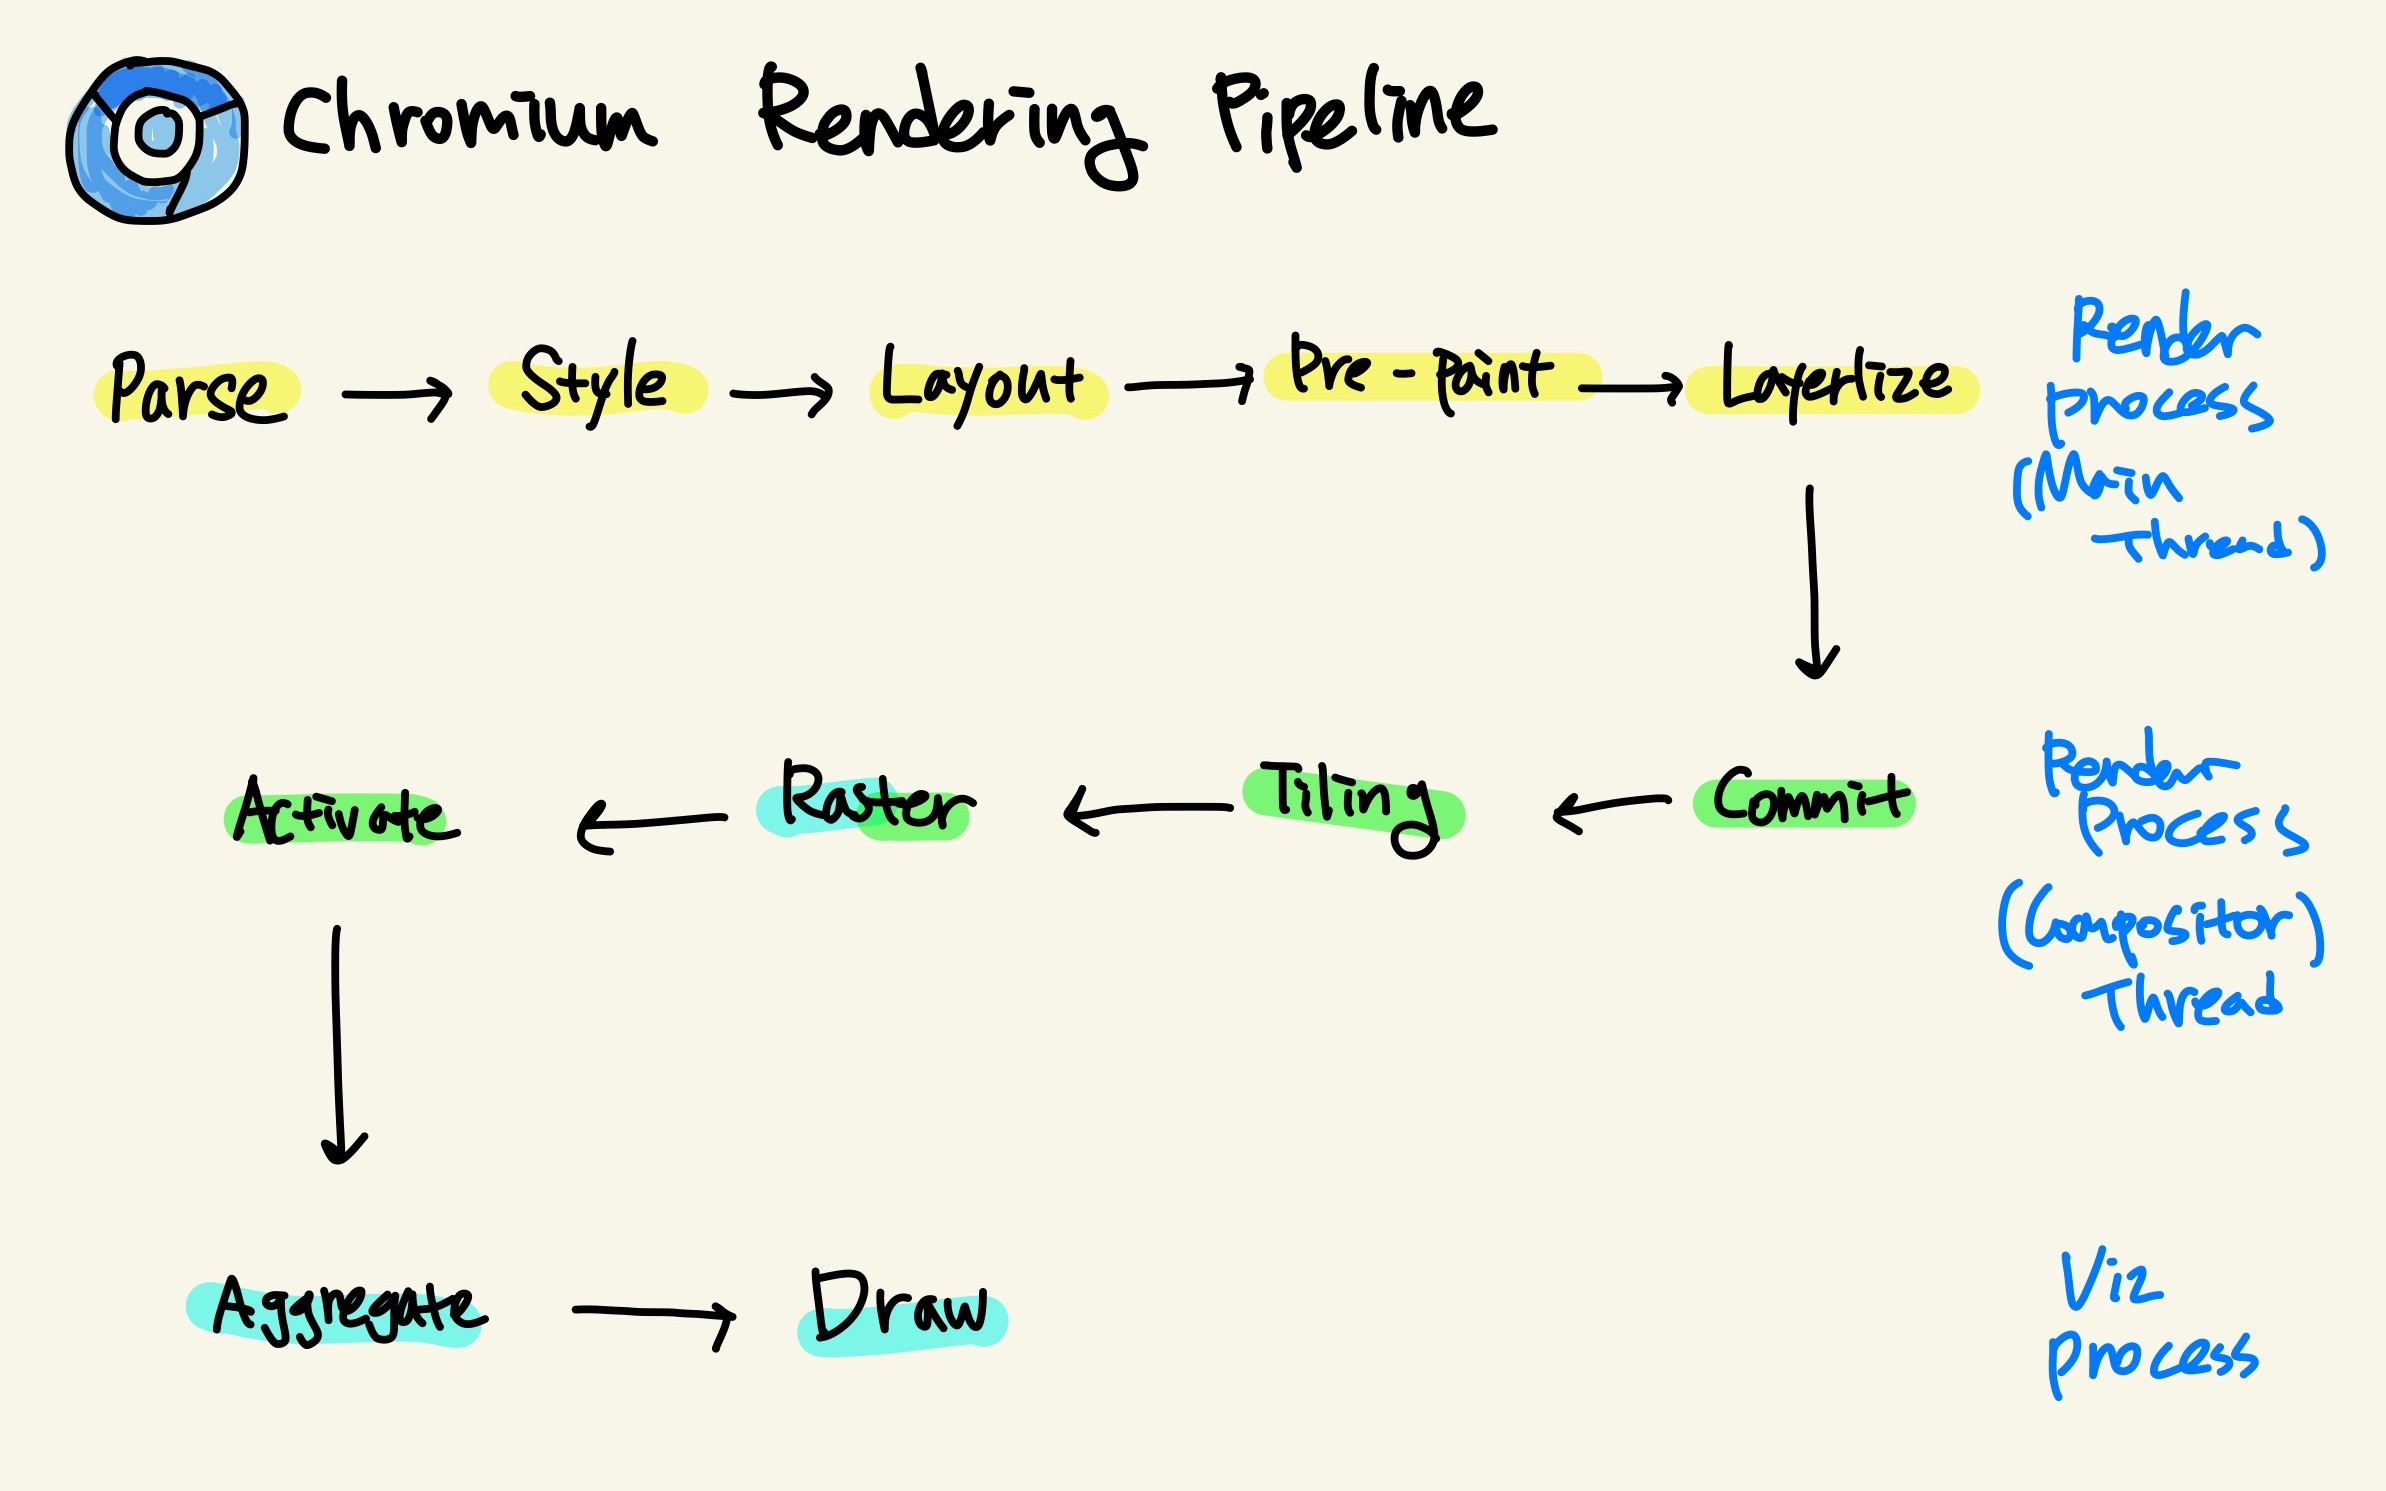 Chromium Rendering Pipeline
Parse → Style → Layout → Pre-paint → Layerlize
Render
process
(Main
Thread)
Activate ← Raster ← Tiling ← Commit
Render
Process
(Compositor)
Thread
Aggregate → Draw
Viz
process